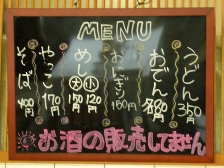 MENU
うどん 350円
おでん 80円
おにぎり 150円
めし 大 150円 小 120円
やっこ 170円
そば 400円
お酒の販売してません